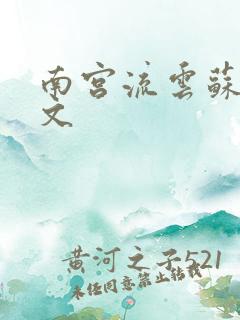 南宫流雲蘇
文
黄河之子521
未任同意禁止轉載